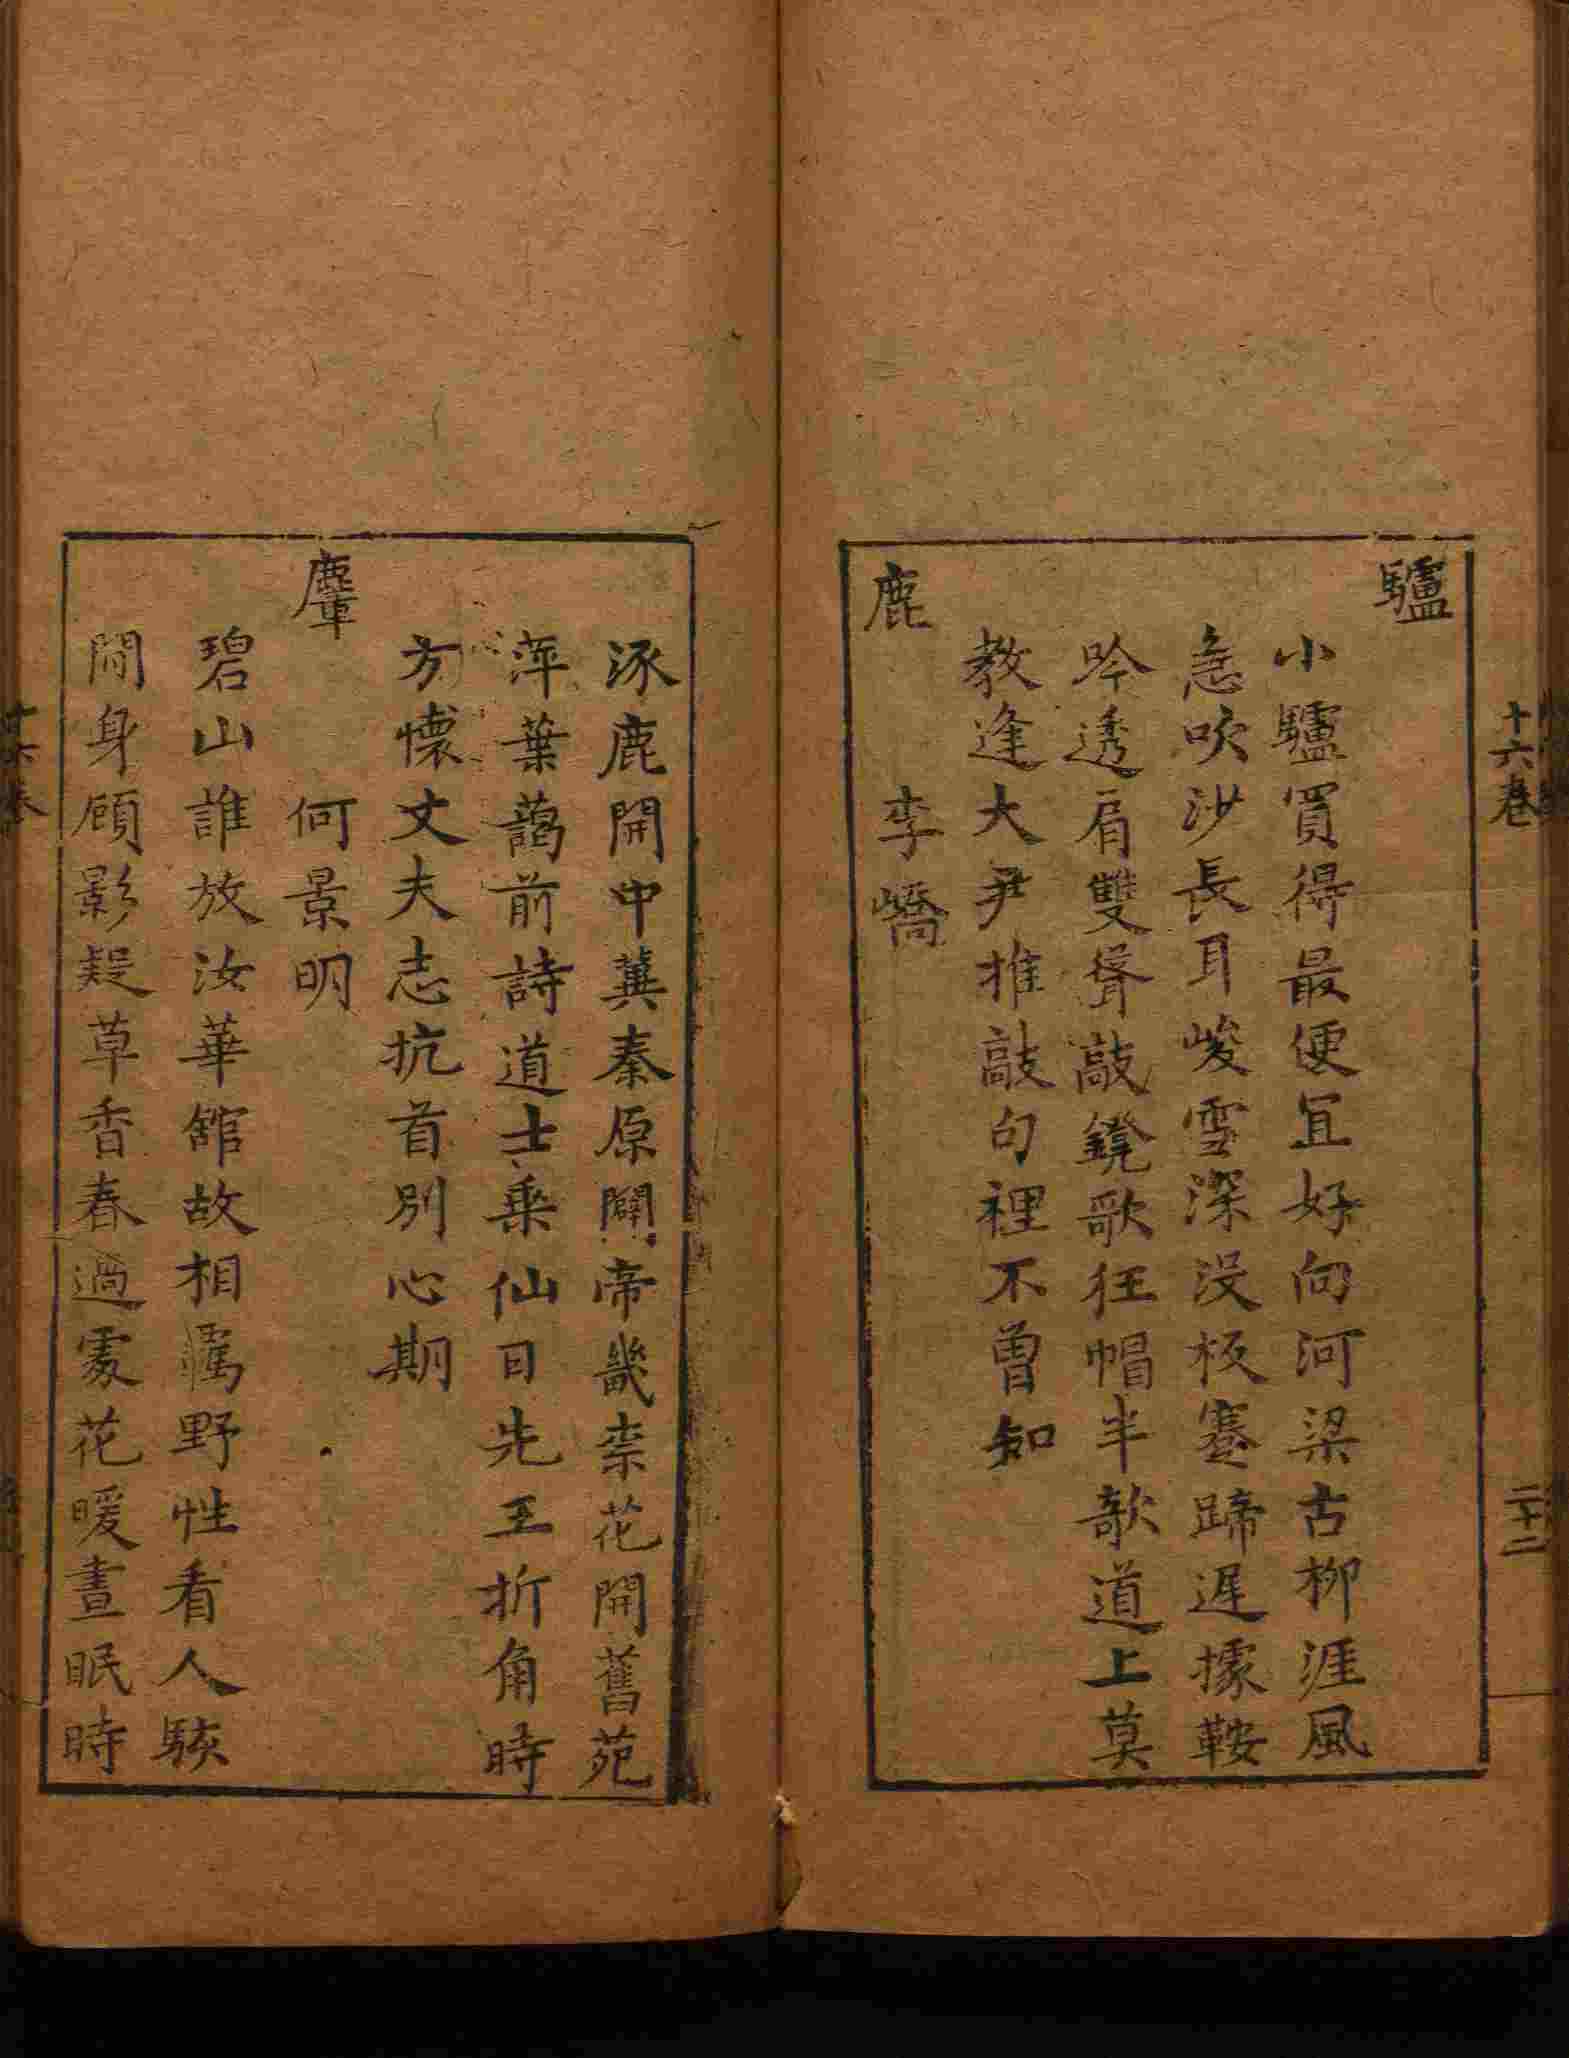 十六卷
二十二
驢
小驢買得最便宜好向河梁古柳涯風
急吹沙長耳峻雪深沒板蹇蹄遲據鞍
吟透肩雙聳敲鐙歌狂帽半欹道上莫
教逢大尹推敲句裡不曾知
鹿　李嶠
涿鹿開中冀秦原闢帝畿柰花開舊苑
萍葉藹前詩道士乘仙日先王折角時
方懷丈夫志抗首別心期
麞　何景明
碧山誰放汝華舘故相屬野性看人駭
閒身顧影疑草香春過處花暖晝眠時